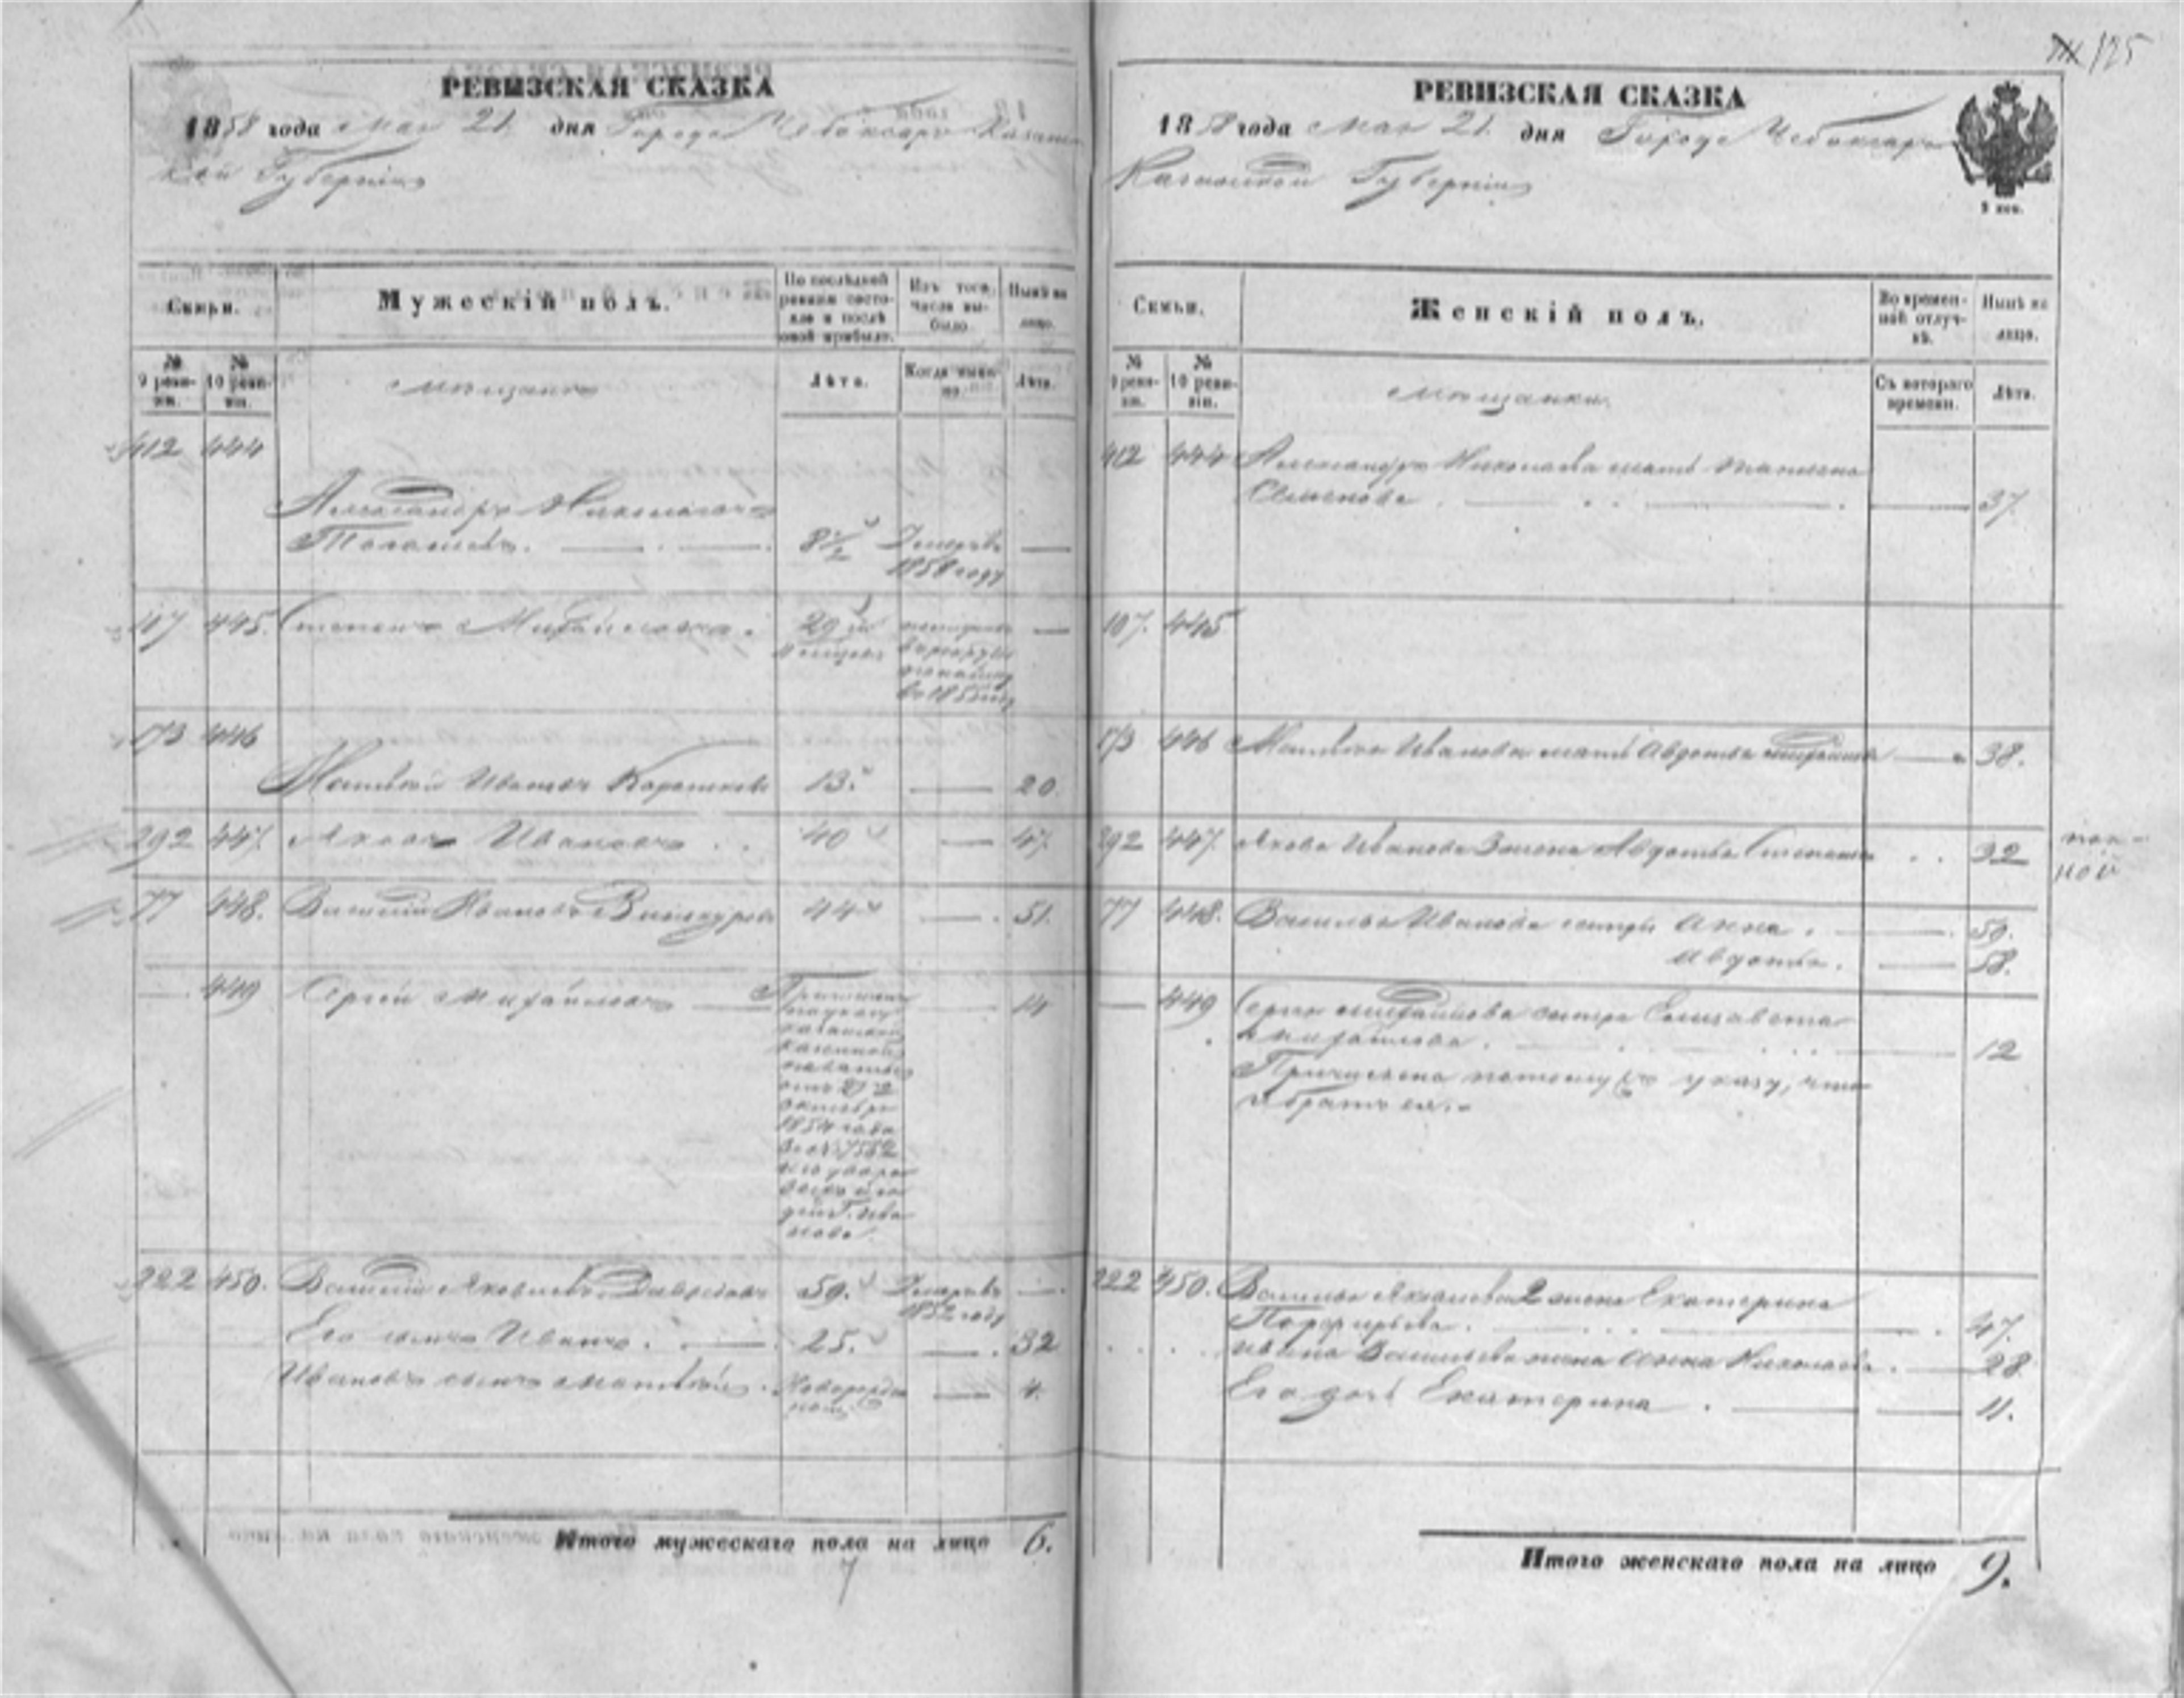 125
РЕВИЗСКАЯ СКАЗКА
1858 года мая 21 дня Города Чебоксаръ Казанс
кой Губернiи
Семьи.
Мужескiй полъ.
По послѣдней ревизiи состояло и послѣ оной прибыло.
Изъ того числа выбыло.
Нынѣ на лицо.
№ 9 ревизiи.
№ 10 ревизiи.
мѣщане
Лѣта.
Когда именно.
Лѣта.
412 444
Александръ Николаевъ
8 1/2 Умеръ въ —
1850 году
107 445. Степанъ Михайловъ. 29 —
173 446
Матвѣй Ивановъ 13. — 20.
292 447. Яковъ Ивановъ 40 — 47
77 448. Василiй Ивановъ Винокуровъ 44 — 51.
— 449 Сергѣй Михайловъ — — 14
Причисленъ
по указу
казанской
казенной
палаты
отъ 27
октября
1854 года
за № 7562
222 450. Василiй Яковлевъ 59. Умеръ въ —
1852 году
Его сынъ Иванъ. — 25. — 32
Ивановъ сынъ Матвѣй. Новорожден — 4.
ный
Итого мужескаго пола на лицо 6.
7
РЕВИЗСКАЯ СКАЗКА
1858 года мая 21 дня Города Чебоксаръ
Казанской Губернiи
Семьи.
Женскiй полъ.
Во временной отлучкѣ.
Нынѣ на лицо.
№ 9 ревизiи.
№ 10 ревизiи.
мѣщанки
Съ котораго времени.
Лѣта.
412 444 Александра Николаева мать Татьяна
Семенова — 37.
107. 445
173 446 Матвѣя Иванова мать Авдотья Михайлова — 38.
292 447. Якова Иванова жена Авдотья Степанова 32
77 448. Василья Иванова сестры Анна. — 59.
Авдотья. — 58.
— 449 Сергея Михайлова сестра Елизавета
Михайлова. — 12
Причислена потому же указу, что
и братъ ея.
222 450. Василья Яковлева 2 жена Екатерина
Порфирьева. — 47.
Ивана Васильева жена Анна Николаева. — 28
Его дочь Екатерина — 11.
Итого женскаго пола на лицо 9.